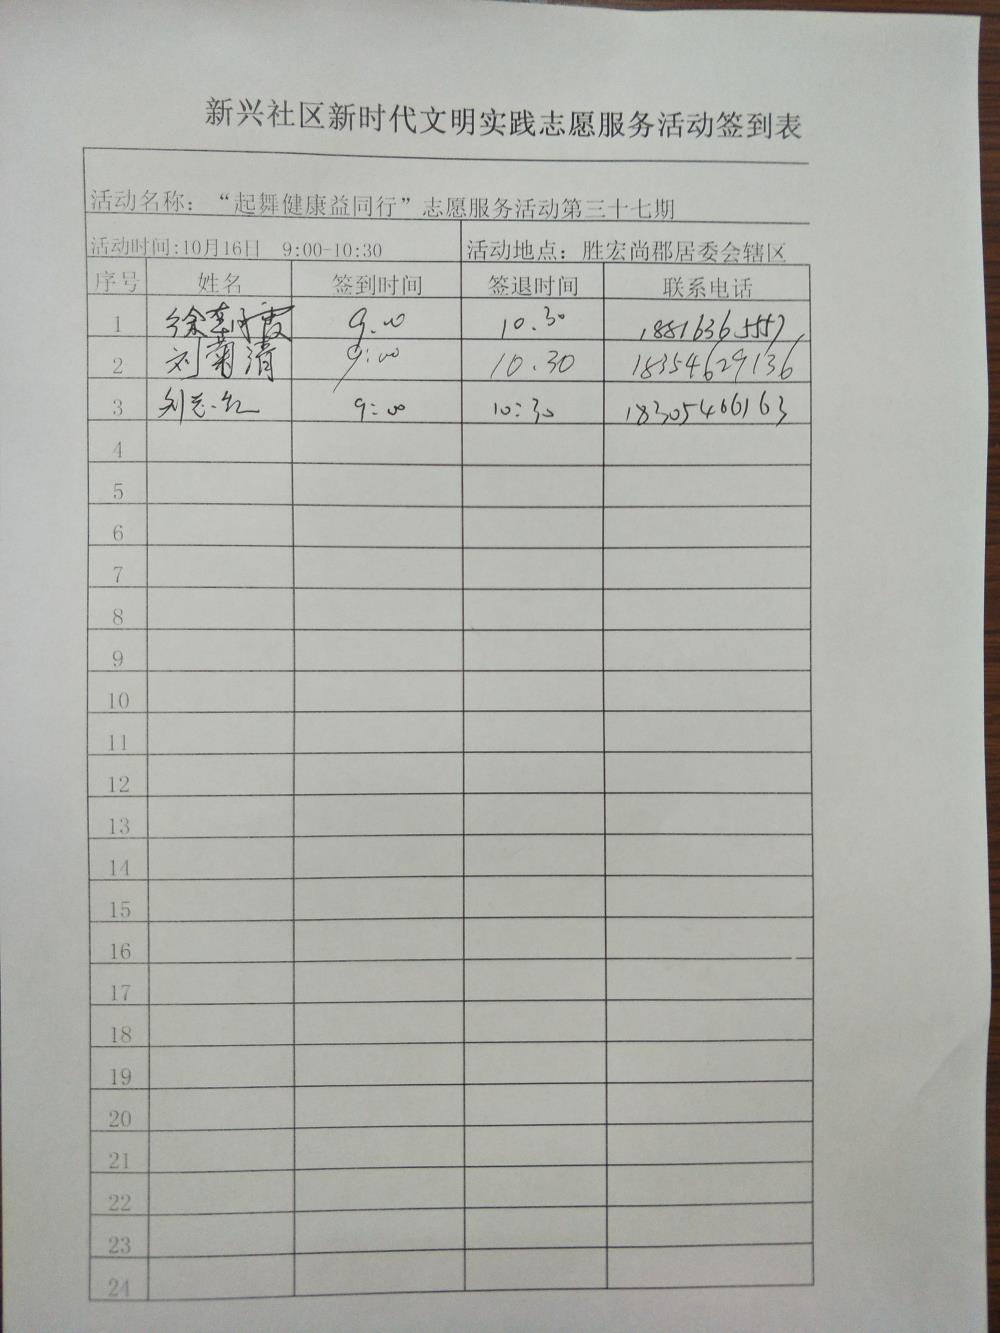 新兴社区新时代文明实践志愿服务活动签到表
活动名称：“起舞健康益同行”志愿服务活动第三十七期
活动时间:10月16日 9:00-10:30 活动地点：胜宏尚郡居委会辖区
序号 姓名 签到时间 签退时间 联系电话
1 徐 霞 9:00 10.30
2 刘菊清 9:00 10.30 18354629136
3 刘志红 9:00 10:30 18305466163
4
5
6
7
8
9
10
11
12
13
14
15
16
17
18
19
20
21
22
23
24